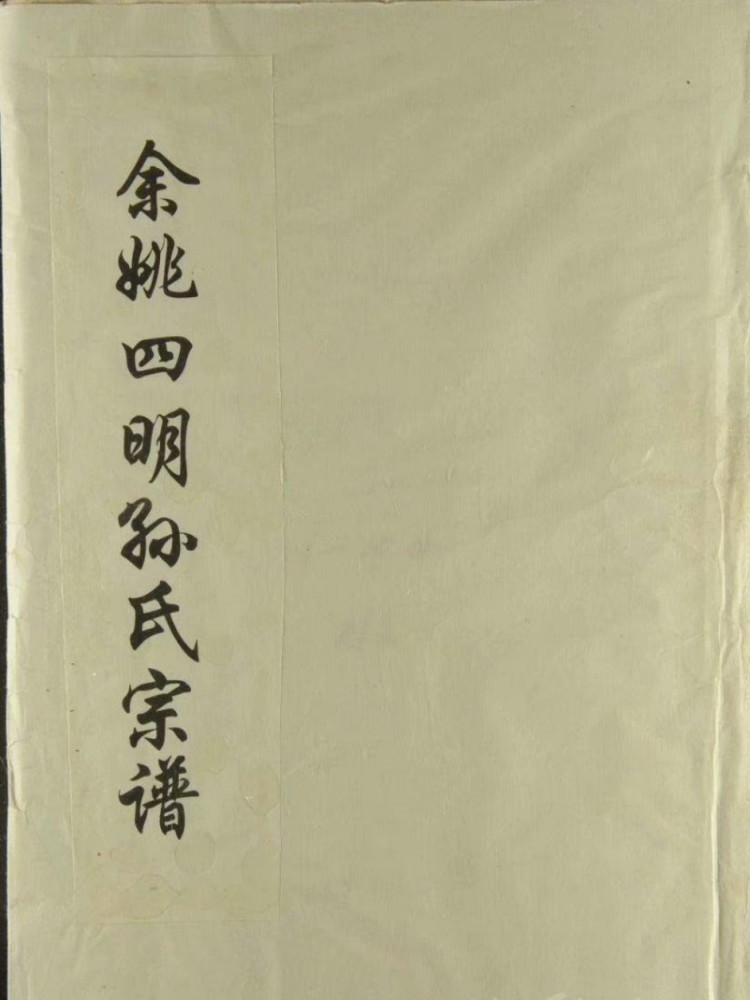 余姚四明孙氏宗谱